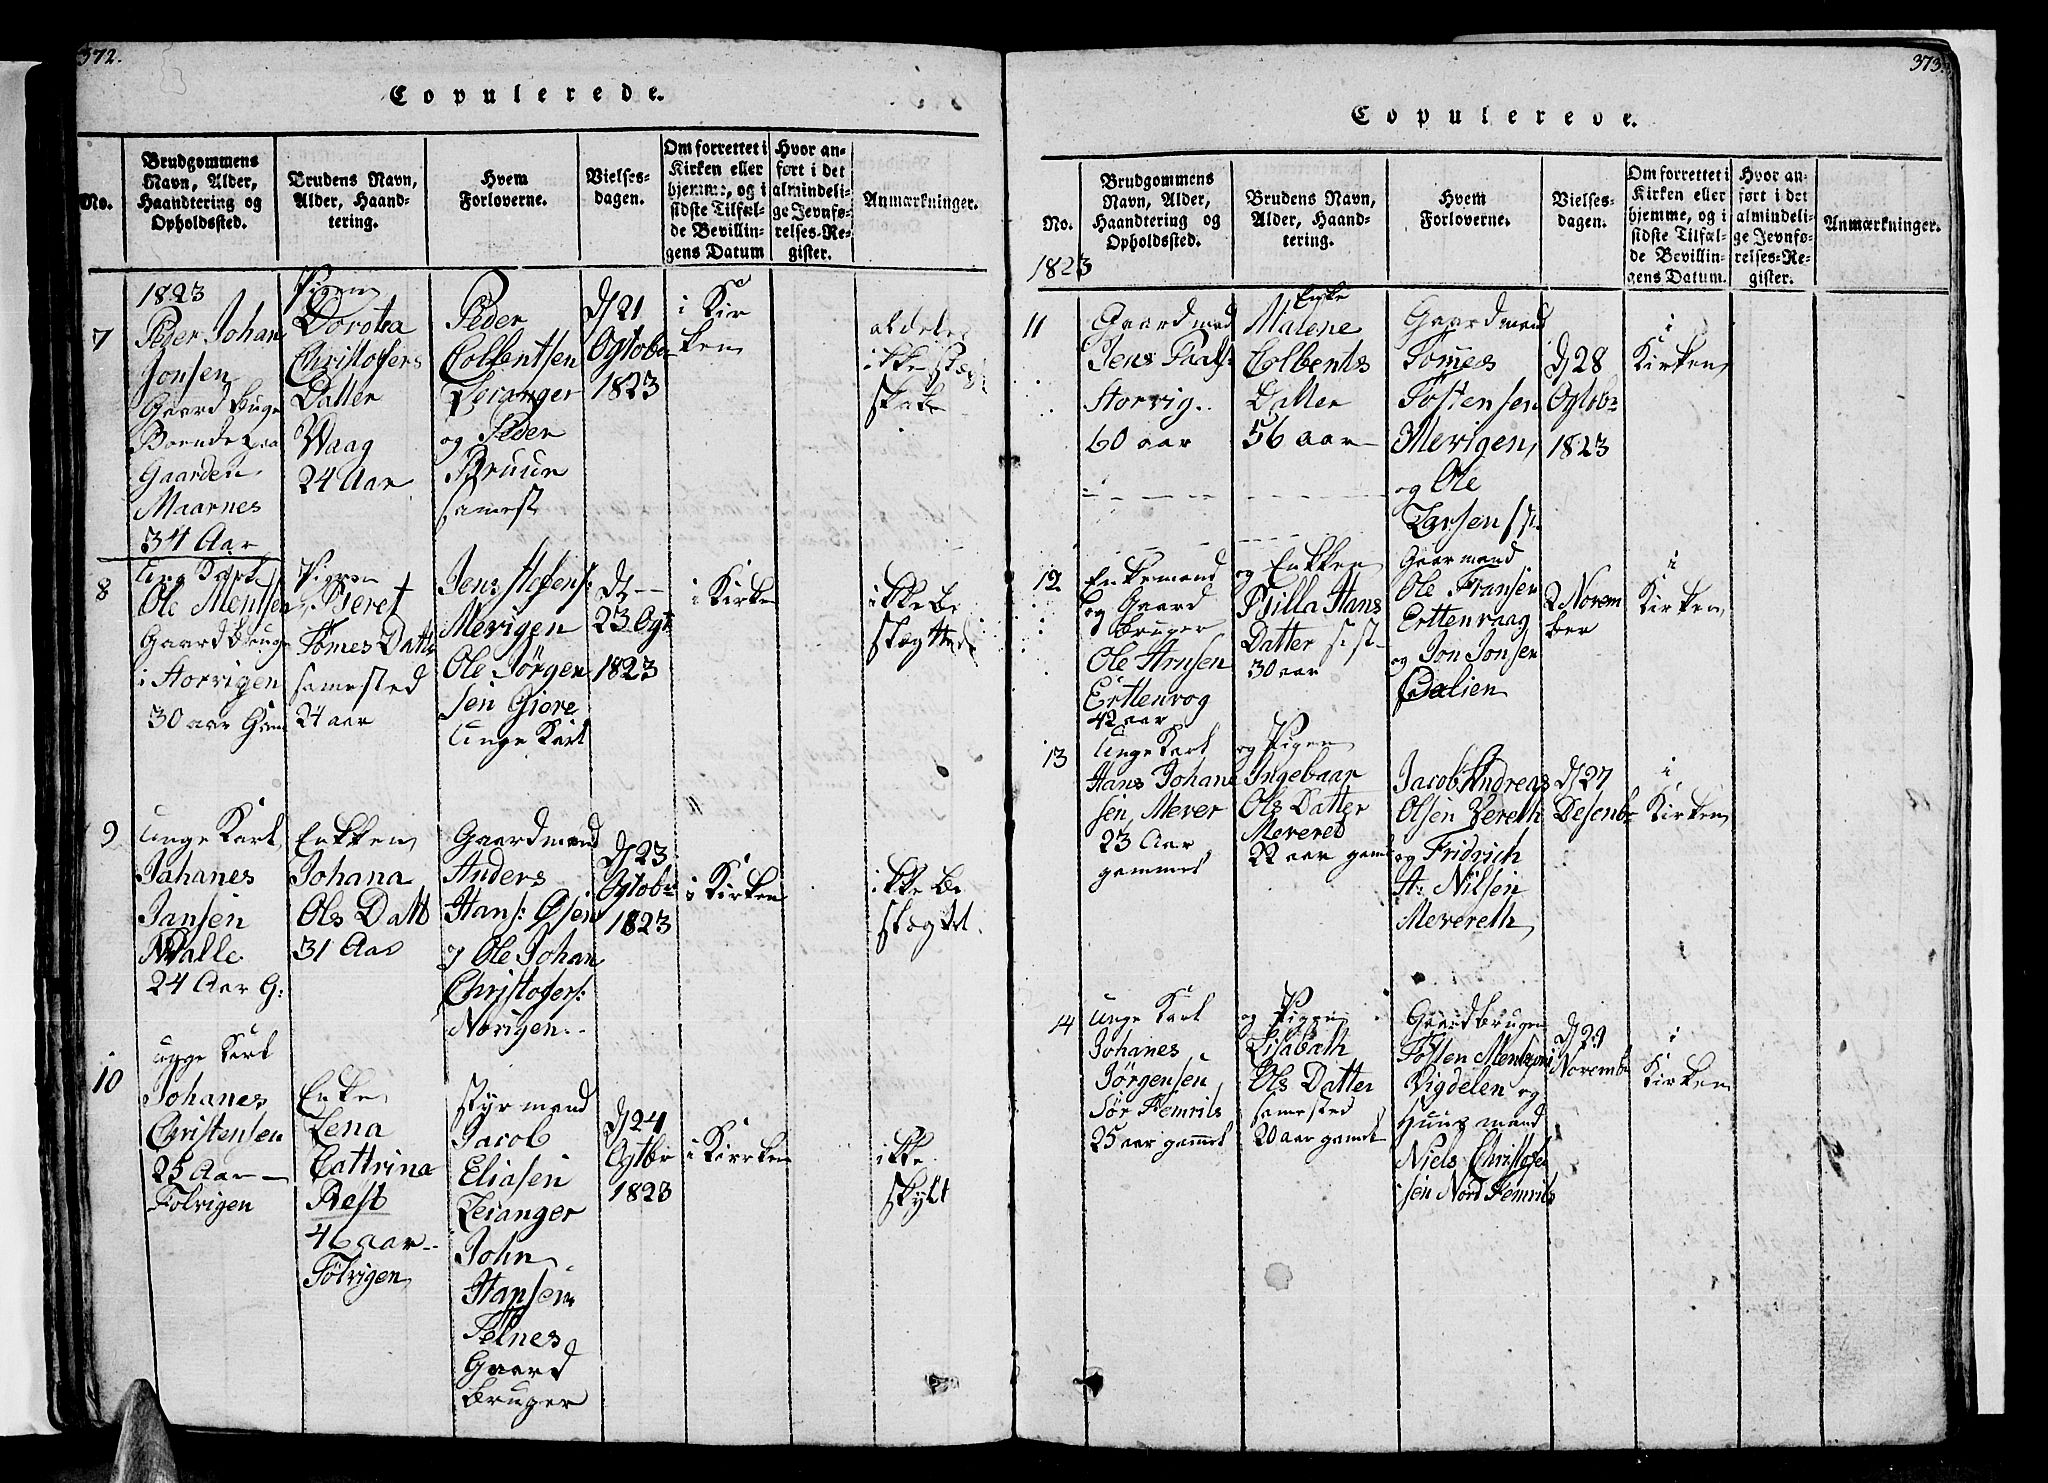 372.
Copulerede.
No.
Brudgommens
Navn, Alder,
Haandtering og
Opholdssted.
Brudens Navn,
Alder, Haand-
tering.
Hvem
Forloverne.
Vielses-
dagen.
Om forrettet i
Kirken eller
hjemme, og i
sidste Tilfæl-
de Bevillin-
gens Datum
Hvor an-
ført i det
almindeli-
ge Jevnfø-
relses-Re-
gister.
Anmærkninger.
7
1823
Peder Johan
Jonsen
Gaard bruge
Boende paa
Gaarden
Maarnes
34 Aar
Pigen
Dorotea
Christofers
Datter
Waag
24 Aar
Peder
Colbentsen
Leranger
og Peder
Bruun
samest
D 21
Ogtober
1823
i Kir
ken
aldeles
ikke
8
unge Karl
Ole Mentsen
Gaard bruge
i Storvigen
30 aar Gam
Pigen
Beret
Tomes Datt
samested
24 aar
Jens
Mevigen
Ole Jørgen
sen Giøre
unge Karl
D --
23 Ogt
1823
i Kirke
ikke be
9
unge Karl
Johanes
Jansen
Walle
24 Aar G:
Enkken
Johana
Ols Datt
31 Aar
Gaardmand
Anders
Hans: Øsen
og Ole Johan
Christofers:
Norigen..
D 23
Ogtober
1823
i Kirken
ikke be
10
unge Karl
Johanes
Christensen
25 Aar —
Folvigen
Enke
Lena
Cattrina
Rest
46 aar..
Følvigen
Styrmand
Jacob
Eliasen
Leranger
John
Hansen
Telnes
Gaard
bruger
D 24
Ogtbr
1823
i Kirrken
ikke
skylt
373.
Copulerede.
No.
Brudgommens
Navn, Alder,
Haandtering og
Opholdssted.
Brudens Navn,
Alder, Haand-
tering.
Hvem
Forloverne.
Vielses-
dagen.
Om forrettet i
Kirken eller
hjemme, og i
sidste Tilfæl-
de Bevillin-
gens Datum.
Hvor an-
ført i det
almindeli-
ge Jevnfø-
relses-Re-
gister.
Anmærkninger.
1823
11
Gaardmand
Jens
Storvig..
60 aar
Enke
Malene
Colbents
Datter
56 aar
Gaardmand
Tomes
Tostensen
Mevigen
og Ole
Larsen
D 28
Ogtobr
1823
i
Kirken
12
Enkemand
og Gaard
bruger
Ole Arnsen
Erttenvog
42 aar
og Enkken
Psilla Hans
Datter
30 aar
Gaarmand
Ole Fransen
Erttenvaag
og Jon Jonsen
2 Novem
ber
i
Kirken
13
unge Karl
Hans Johan
sen, Mever
23 Aar
gammel
og Pigen
Ingebaar
Ols Datter
Mevered
22 aar gam
Jacob Andreas
Olsen Vereth
og Fridrich
A: Nilsen
Mevereth
D 27
Desenbr
i
Kirken
14
unge Karl
Johanes
Jørgensen
Sør Femriis
25 aar gammel
og Pigen
Lisabath
Ols Datter
samested
20 aar gamel
Gaardbruger
Tosten Mentsen
Vigdelen og
Huusmand
Niels Christofer
sen Nord Femriis
D 29
Novembr
i
Kirken